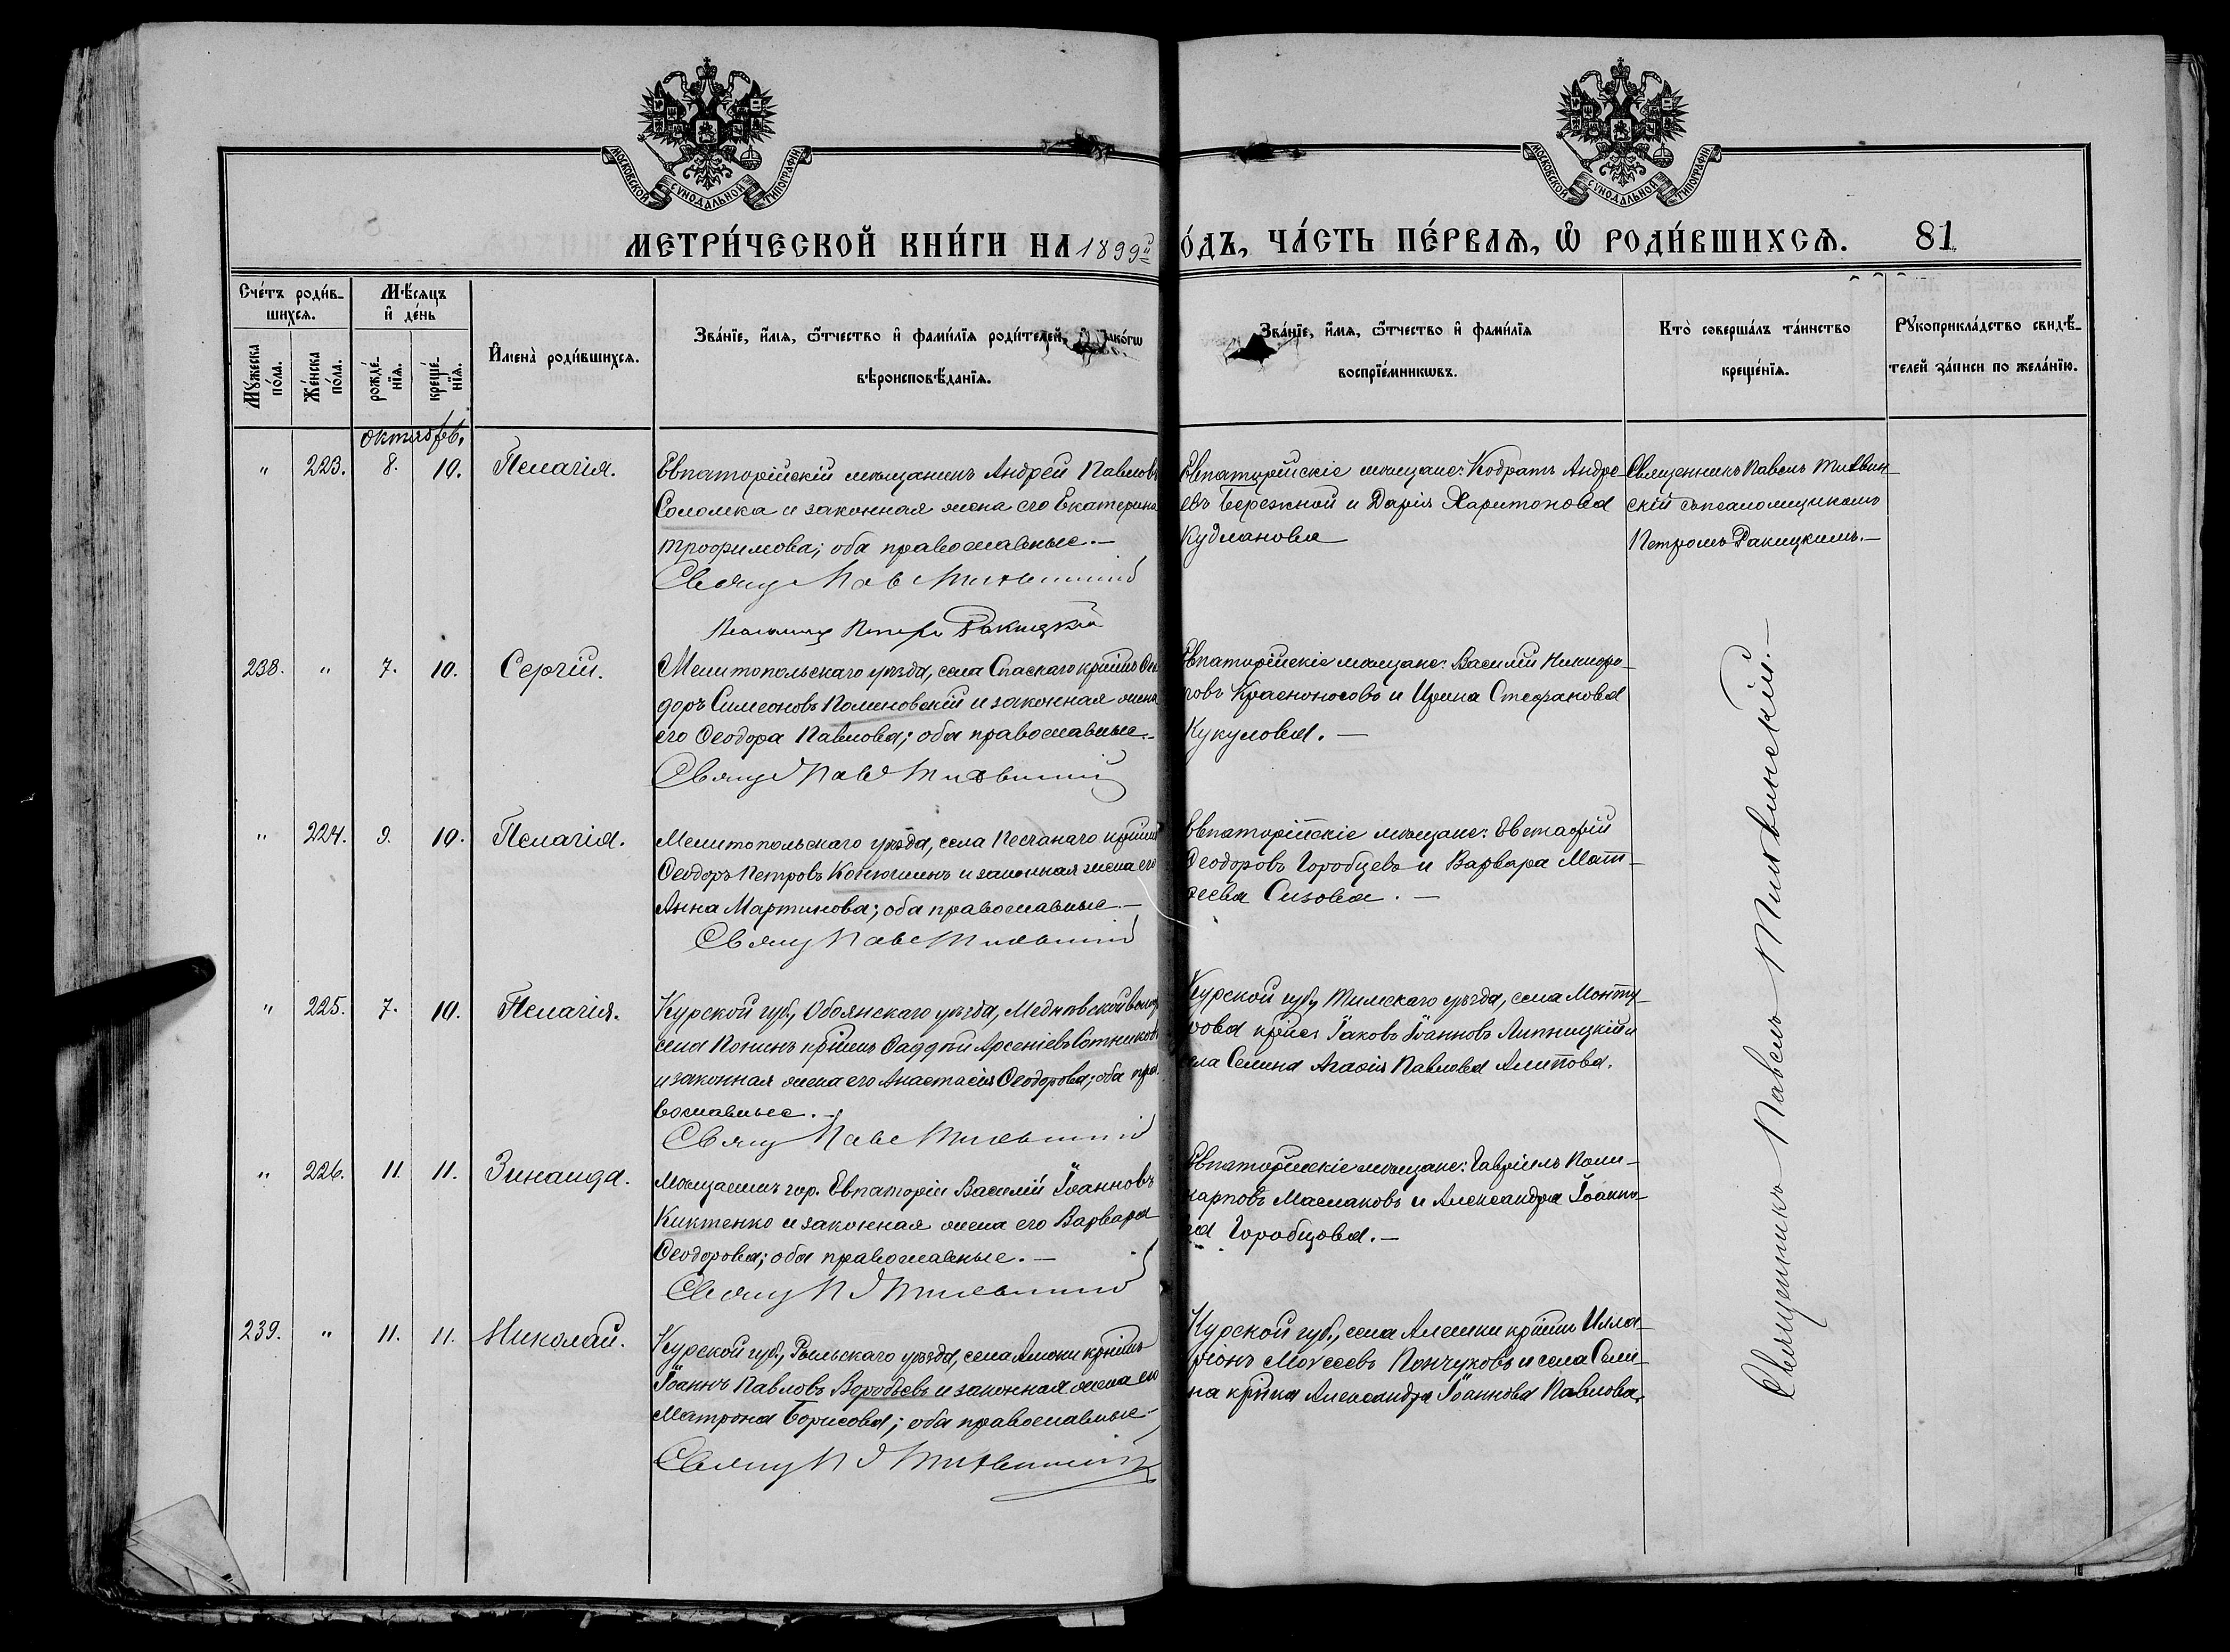 МОСКОВСКОЙ СѴНОДАЛЬНОЙ ТИПОГРАФІИ
МОСКОВСКОЙ СѴНОДАЛЬНОЙ ТИПОГРАФІИ
МЕТРИ́ЧЕСКОЙ КНИ́ГИ НА 1899й
О́ДЪ, ЧА́СТЬ ПЕ́РВАЯ, Ѡ҆ РОДИ́ВШИХСЯ. 81
Сче́тъ роди́в-
шихся.
Мꙋ́жеска по́ла.
Же́нска по́ла.
Мѣ́сяцъ
и҆ де́нь
рожде́-
нїя.
креще́-
нїя.
И҆мена̀ роди́вшихся.
Зва́нїе, и҆́мя, ѻ҆́тчество и҆ фамил́їя роди́телей, и҆ како́гѡ
вѣроисповѣ́данїя.
Зва́нїе, и҆́мя, ѻ҆́тчество и҆ фами́лїя
воспрїе́мникѡвъ.
Кто̀ соверша́лъ та́инство
креще́нїя.
Рꙋкоприкла́дство свидѣ́-
телей за́писи по жела́нїю.
октябрь.
" 223. 8. 10. Пелагія.
Евпаторійскій мѣщанинъ Андрей Павловъ
Соломка и законная жена его Екатерина
Трофимова; оба православные.—
Свящ Пав Тихвинскій
Псаломщ Петръ Ракицкій
Евпаторійскіе мѣщане: Кодратъ Андре-
евъ Бережной и Дарія Харитонова
Кудланова
Священникъ Павелъ Тихвин-
скій съ псаломщикомъ
Петромъ Ракицкимъ.—
238. " 7. 10. Сергій.
Мелитопольскаго уѣзда, села Спаскаго крнинъ Ѳео
доръ Симеоновъ Полиновскій и законная жена
его Ѳеодора Павлова; оба православные.-
Свящ Пав Тихвинскій
Евпаторійскіе мѣщане: Василій Никифо-
ровъ Красноносовъ и Ирина Стефанова
Кукулова.—
" 224. 9. 10. Пелагія.
Мелитопольскаго уѣзда, села Песчанаго крнинъ
Ѳеодоръ Петровъ Конюшинъ и законная жена его
Анна Мартинова; оба православные.—
Свящ Пав Тихвинскій
Евпаторійскіе мѣщане: Евстафій
Ѳеодоровъ Горобцевъ и Варвара Мат-
ѳеева Сизова.—
" 225. 7. 10. Пелагія.
Курской губ, Обоянскаго уѣзда, Медвѣвской волос
села крнинъ Ѳаддѣй Арсеніевъ Сотниковъ
и законная жена его Анастасія Ѳеодорова; оба пра
вославные.—
Свящ Павел Тихвинскій
Курской губ, Тимскаго уѣзда, села Монту-
рова крнинъ Іаковъ Іоанновъ Липницкій и
села Селина Агаѳія Павлова
" 226. 11. 11. Зинаида.
Мѣщанинъ гор. Евпаторіи Василій Іоанновъ
Киктенко и законная жена его Варвара
Ѳеодорова; оба православные.—
Свящ П Тихвинскій
Евпаторійскіе мѣщане: Гавріилъ Поли-
карповъ Маслаковъ и Александра Іоанно-
ва Горобцова.—
239. " 11. 11. Николай.
Курской губ, Рыльскаго уѣзда, села Амони крнинъ
Іоаннъ Павловъ Воробьевъ и законная жена его
Матрона Борисова; оба православные.
Свящ П Тихвинскій
Курской губ., села крнинъ Илла-
ріонъ Моѵсеевъ Пончуковъ и села Сели-
на крнка Александра Іоаннова Павлова.
Священникъ Павелъ Тихвинскій.—